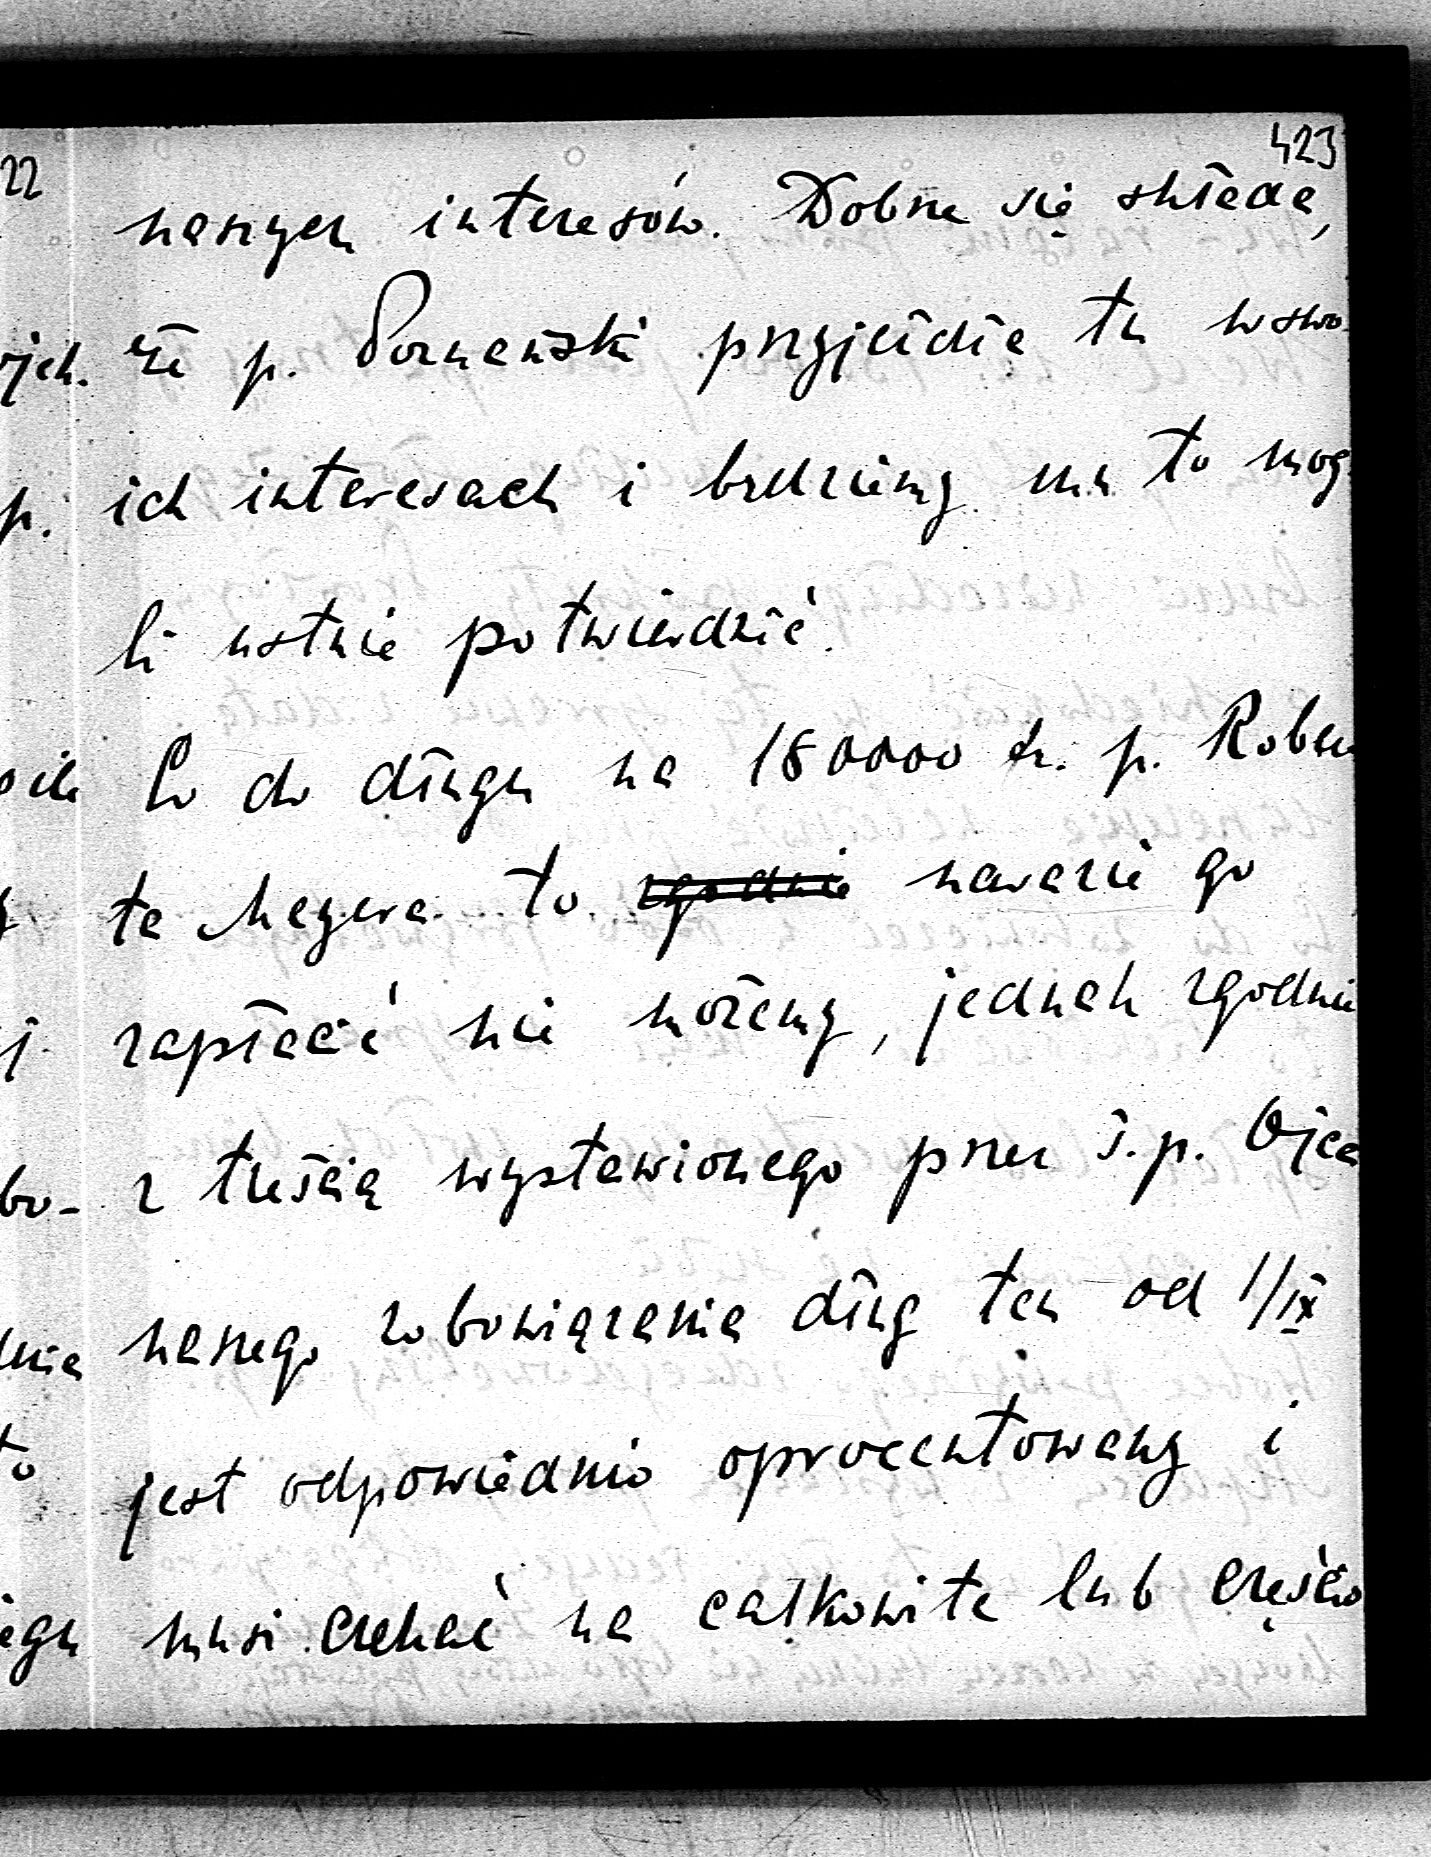 423
22
naszych interesów. Dobrze się składa,
że p. Poznański przyjeżdża tu w swo-
ich interesach i będziemy mu to mog-
li ustnie potwierdzić.
Co do długu na 180000 zł. p. Rober-
ta Meyera to zgodnie narazie go
zapłacić nie możemy, jednak zgodnie
z treścią wystawionego przez ś.p. Ojca
naszego zobowiązania dług ten od 1/IX
jest odpowiednio oprocentowany i
musi czekać na całkowite lub częścio